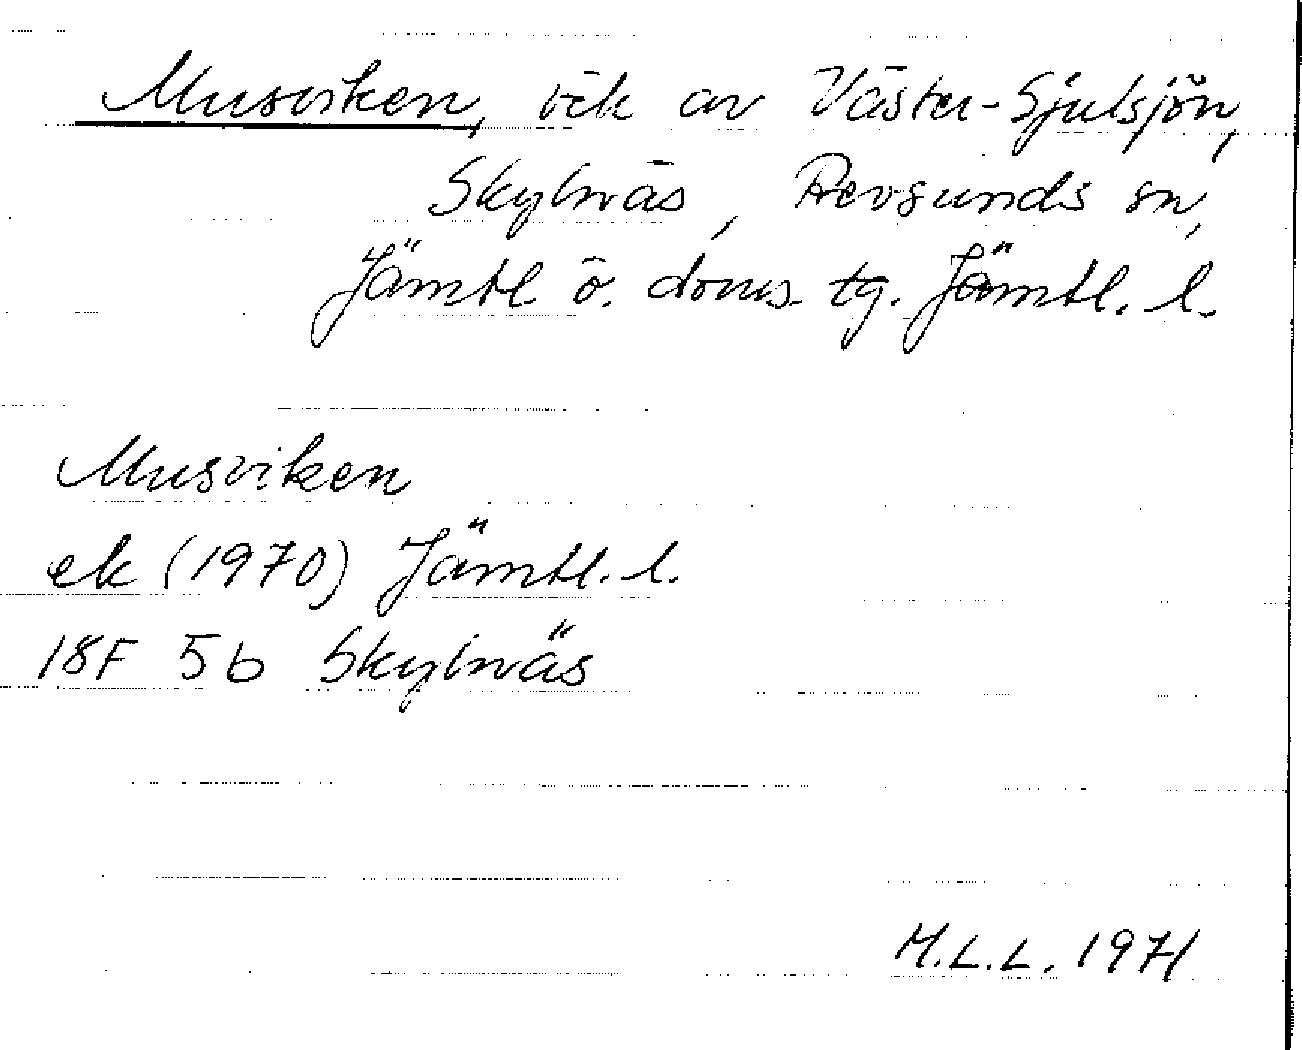 Musviken, vik av Väster-Sjulsjön,
Skylnäs, Revsunds sn,
Jämtl ö. doms. tg. Jämtl. l.
Musviken
ek (1970) Jämtl. l.
18F 5b Skylnäs
M.L.L. 1971